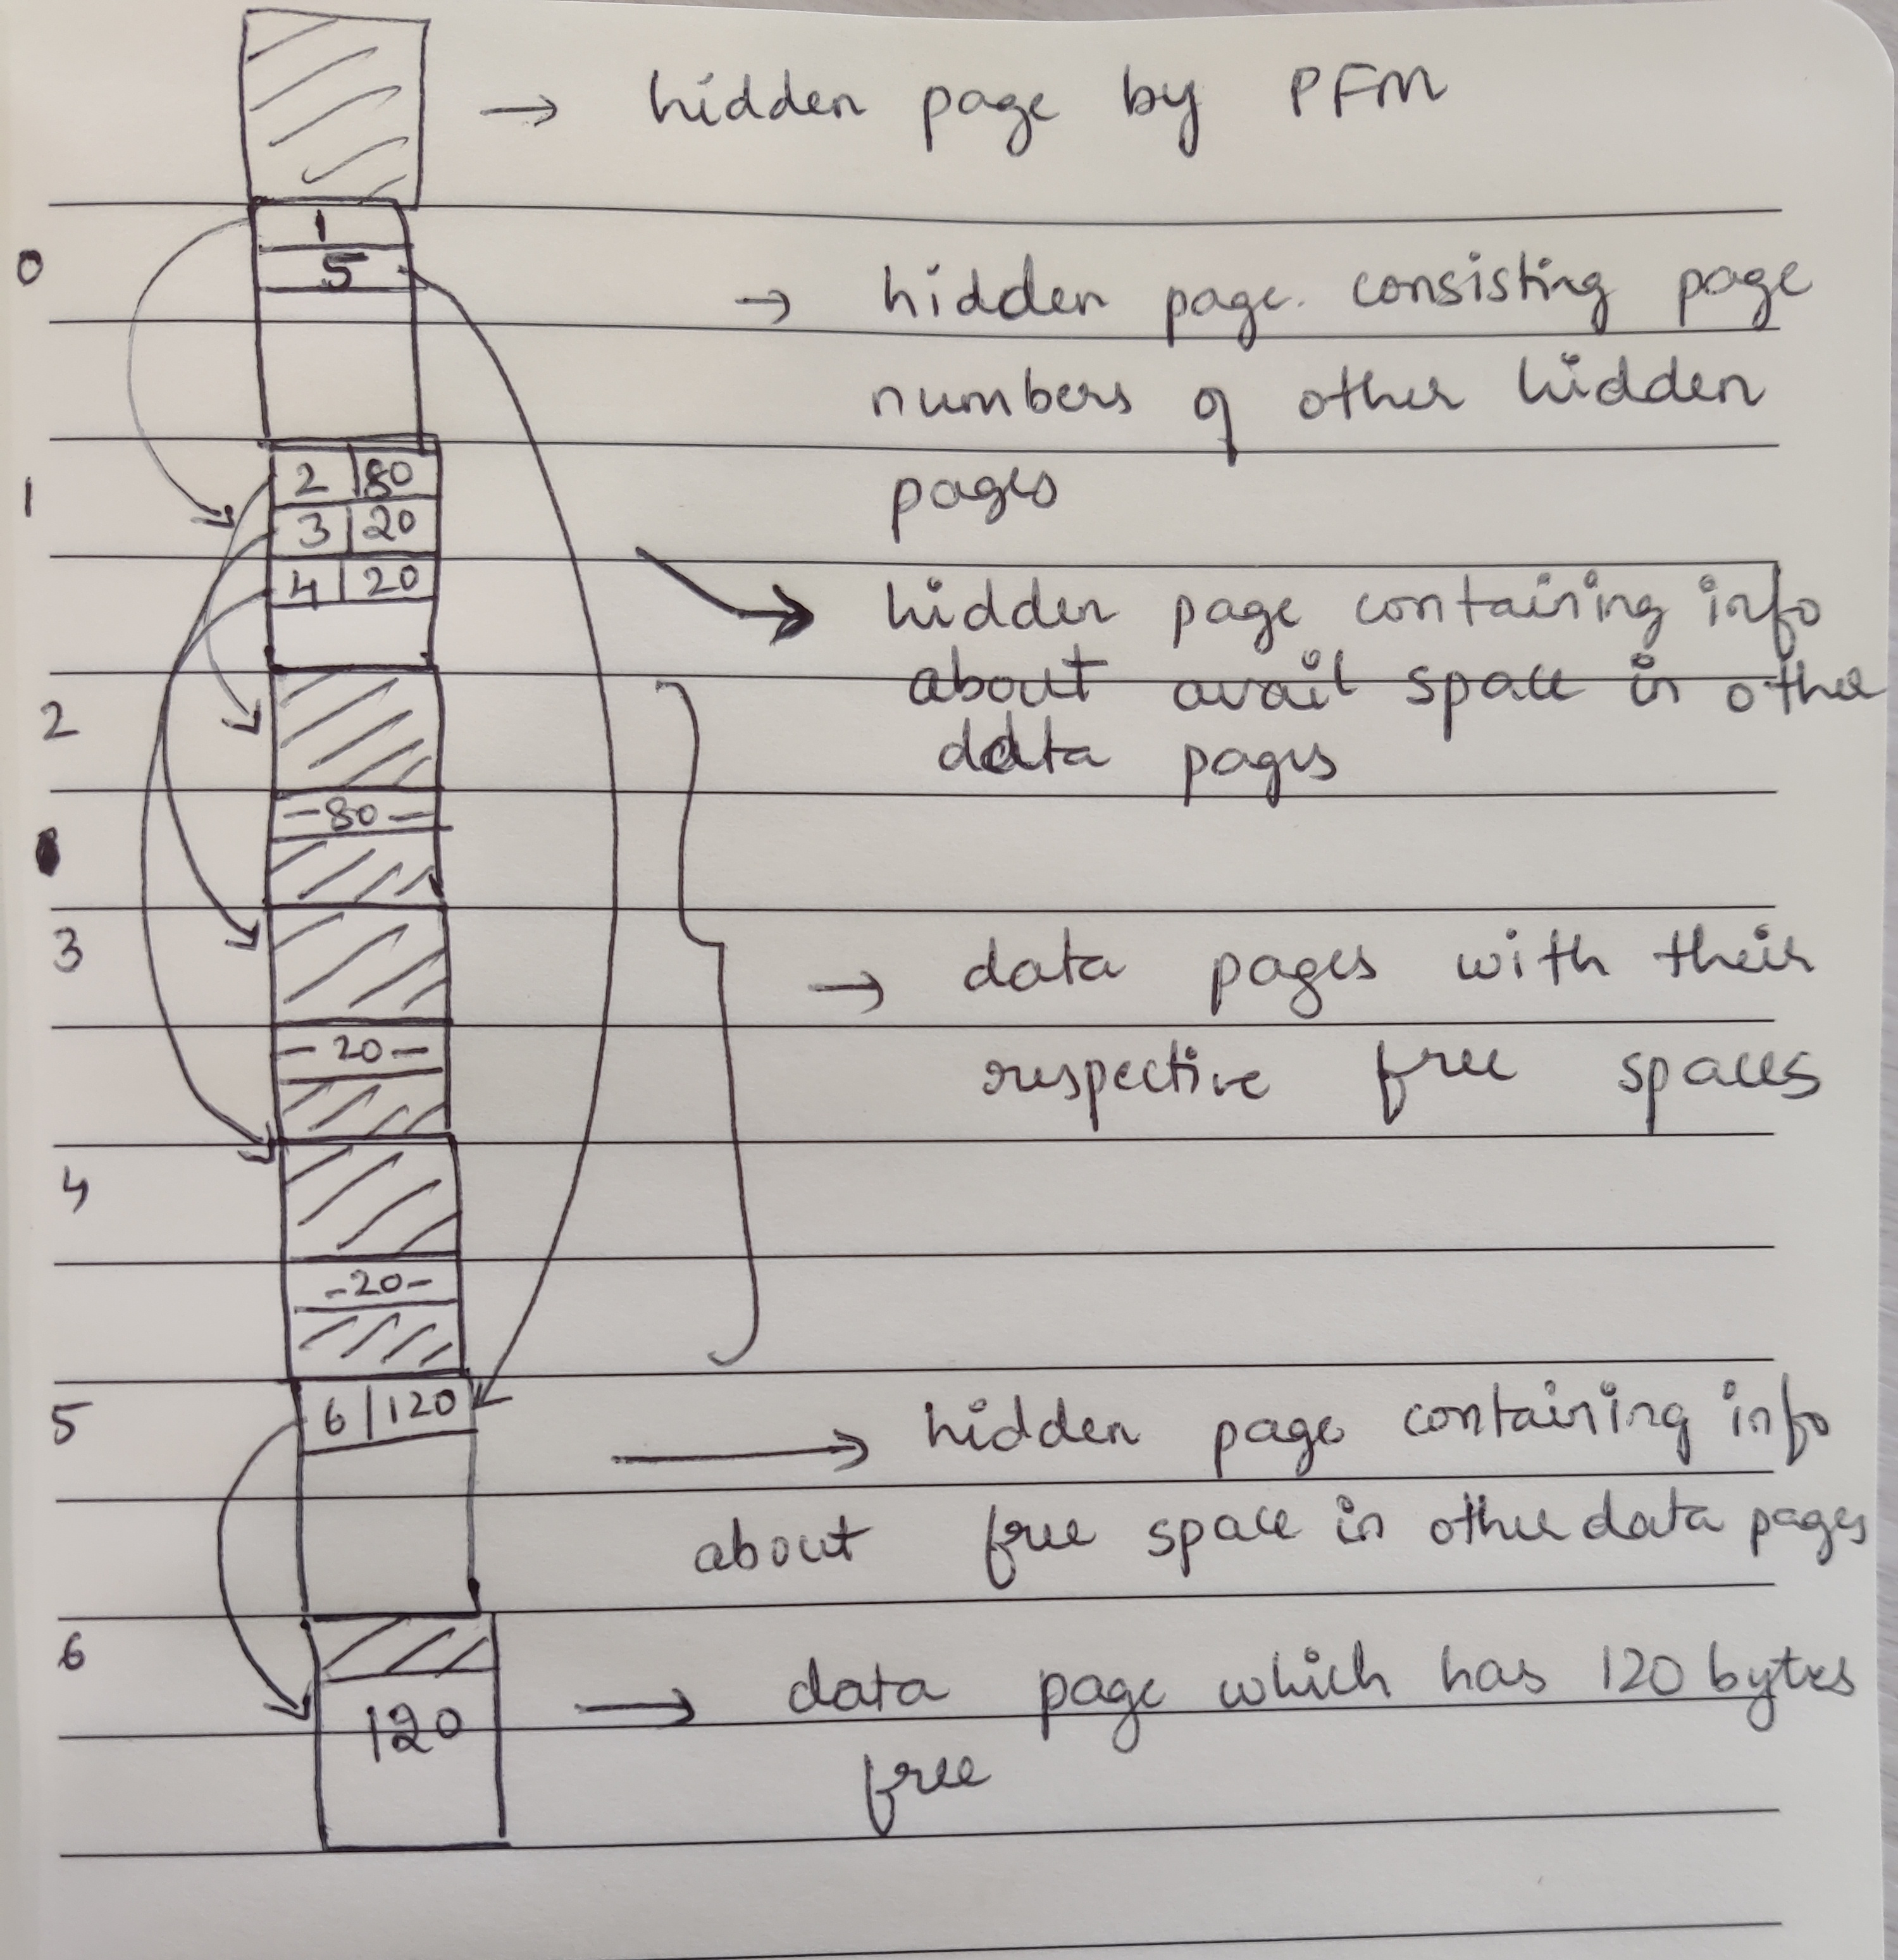 → hidden page by PFM
1
0
5
→ hidden page consisting page
numbers of other hidden
pages
1
2 | 80
3 | 20
4 | 20
hidden page containing info
about avail space in other
data pages
2
-80-
3
→ data pages with their
-20-
respective free spaces
4
-20-
5
6 | 120
→ hidden page containing info
about free space in other data pages
6
→ data page which has 120 bytes
120
free